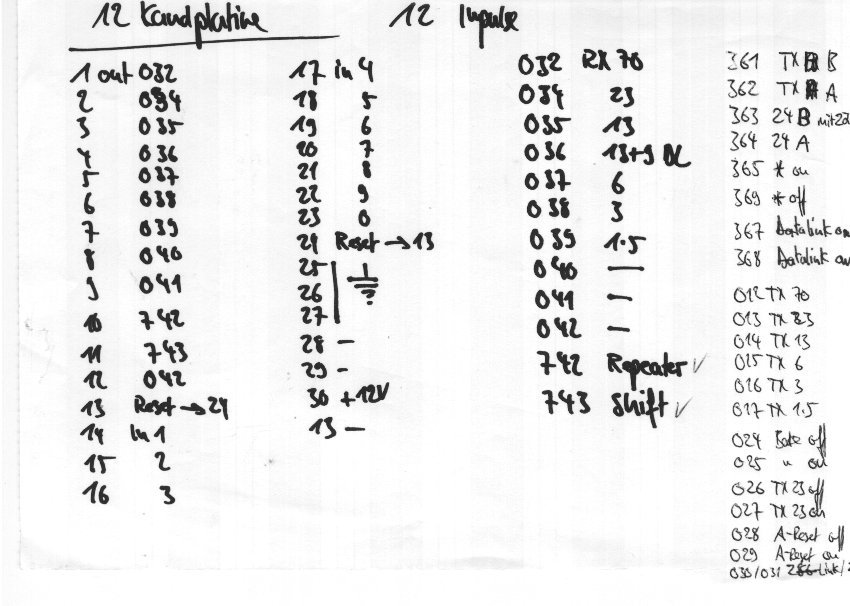 12 Kanalplatine
1 out 032
2 034
3 035
4 036
5 037
6 038
7 039
8 040
9 041
10 742
11 743
12 042
13 Reset → 24
14 In 1
15 2
16 3
17 in 4
18 5
19 6
20 7
21 8
22 9
23 0
24 Reset → 13
25
26
27 ?
28 -
29 -
30 +12V
13 -
12 Impulse
032 RX 70
034 23
035 13
036 13+9 DL
037 6
038 3
039 1.5
040 —
041 —
042 —
742 Repeater ✓
743 Shift ✓
361 TX B
362 TX A
363 24 B
364 24 A
365 * on
369 * off
367 Datalink
368 Datalink
012 TX 70
013 TX 23
014 TX 13
015 TX 6
016 TX 3
017 TX 1.5
024 off
025 " on
026 TX 23 off
027 TX 23 on
028 A-Reset off
029 A-Reset on
030/031 Link/